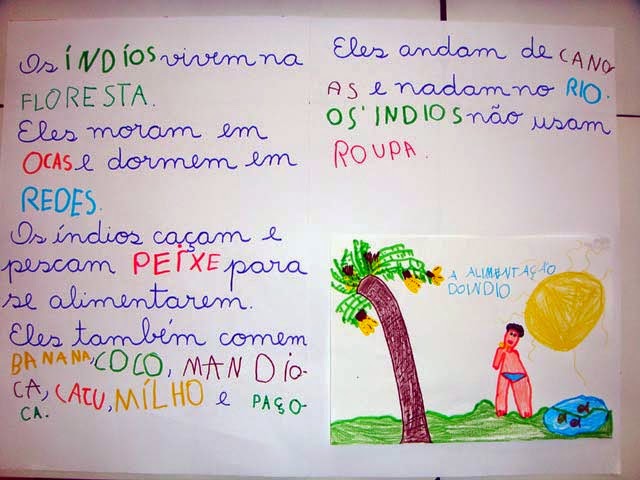 Os ÍNDÍOS vivem na
FLORESTA.
Eles moram em
OCAS e dormem em
REDES.
Os índios caçam e
pescam PEÍXE para
se alimentarem.
Eles também comem
BANANA, COCO, MANDIO-
CA, CAJU, MÍLHO e PAÇO-
CA.
Eles andam de CANO
AS e nadam no RIO.
OS ÍNDIOS não usam
ROUPA.
A ALIMENTAÇÃO
DO INDIO